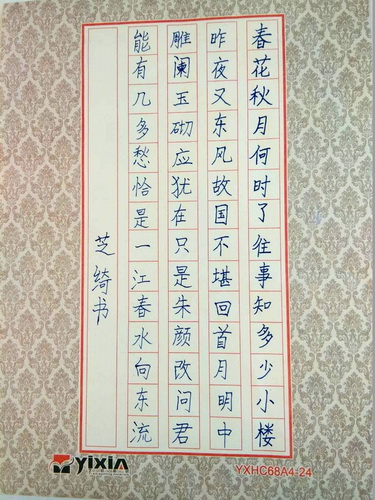 春花秋月何时了往事知多少小楼
昨夜又东风故国不堪回首月明中
雕阑玉砌应犹在只是朱颜改问君
能有几多愁恰是一江春水向东流
芝绮书
yixin
YXHC68A4-24